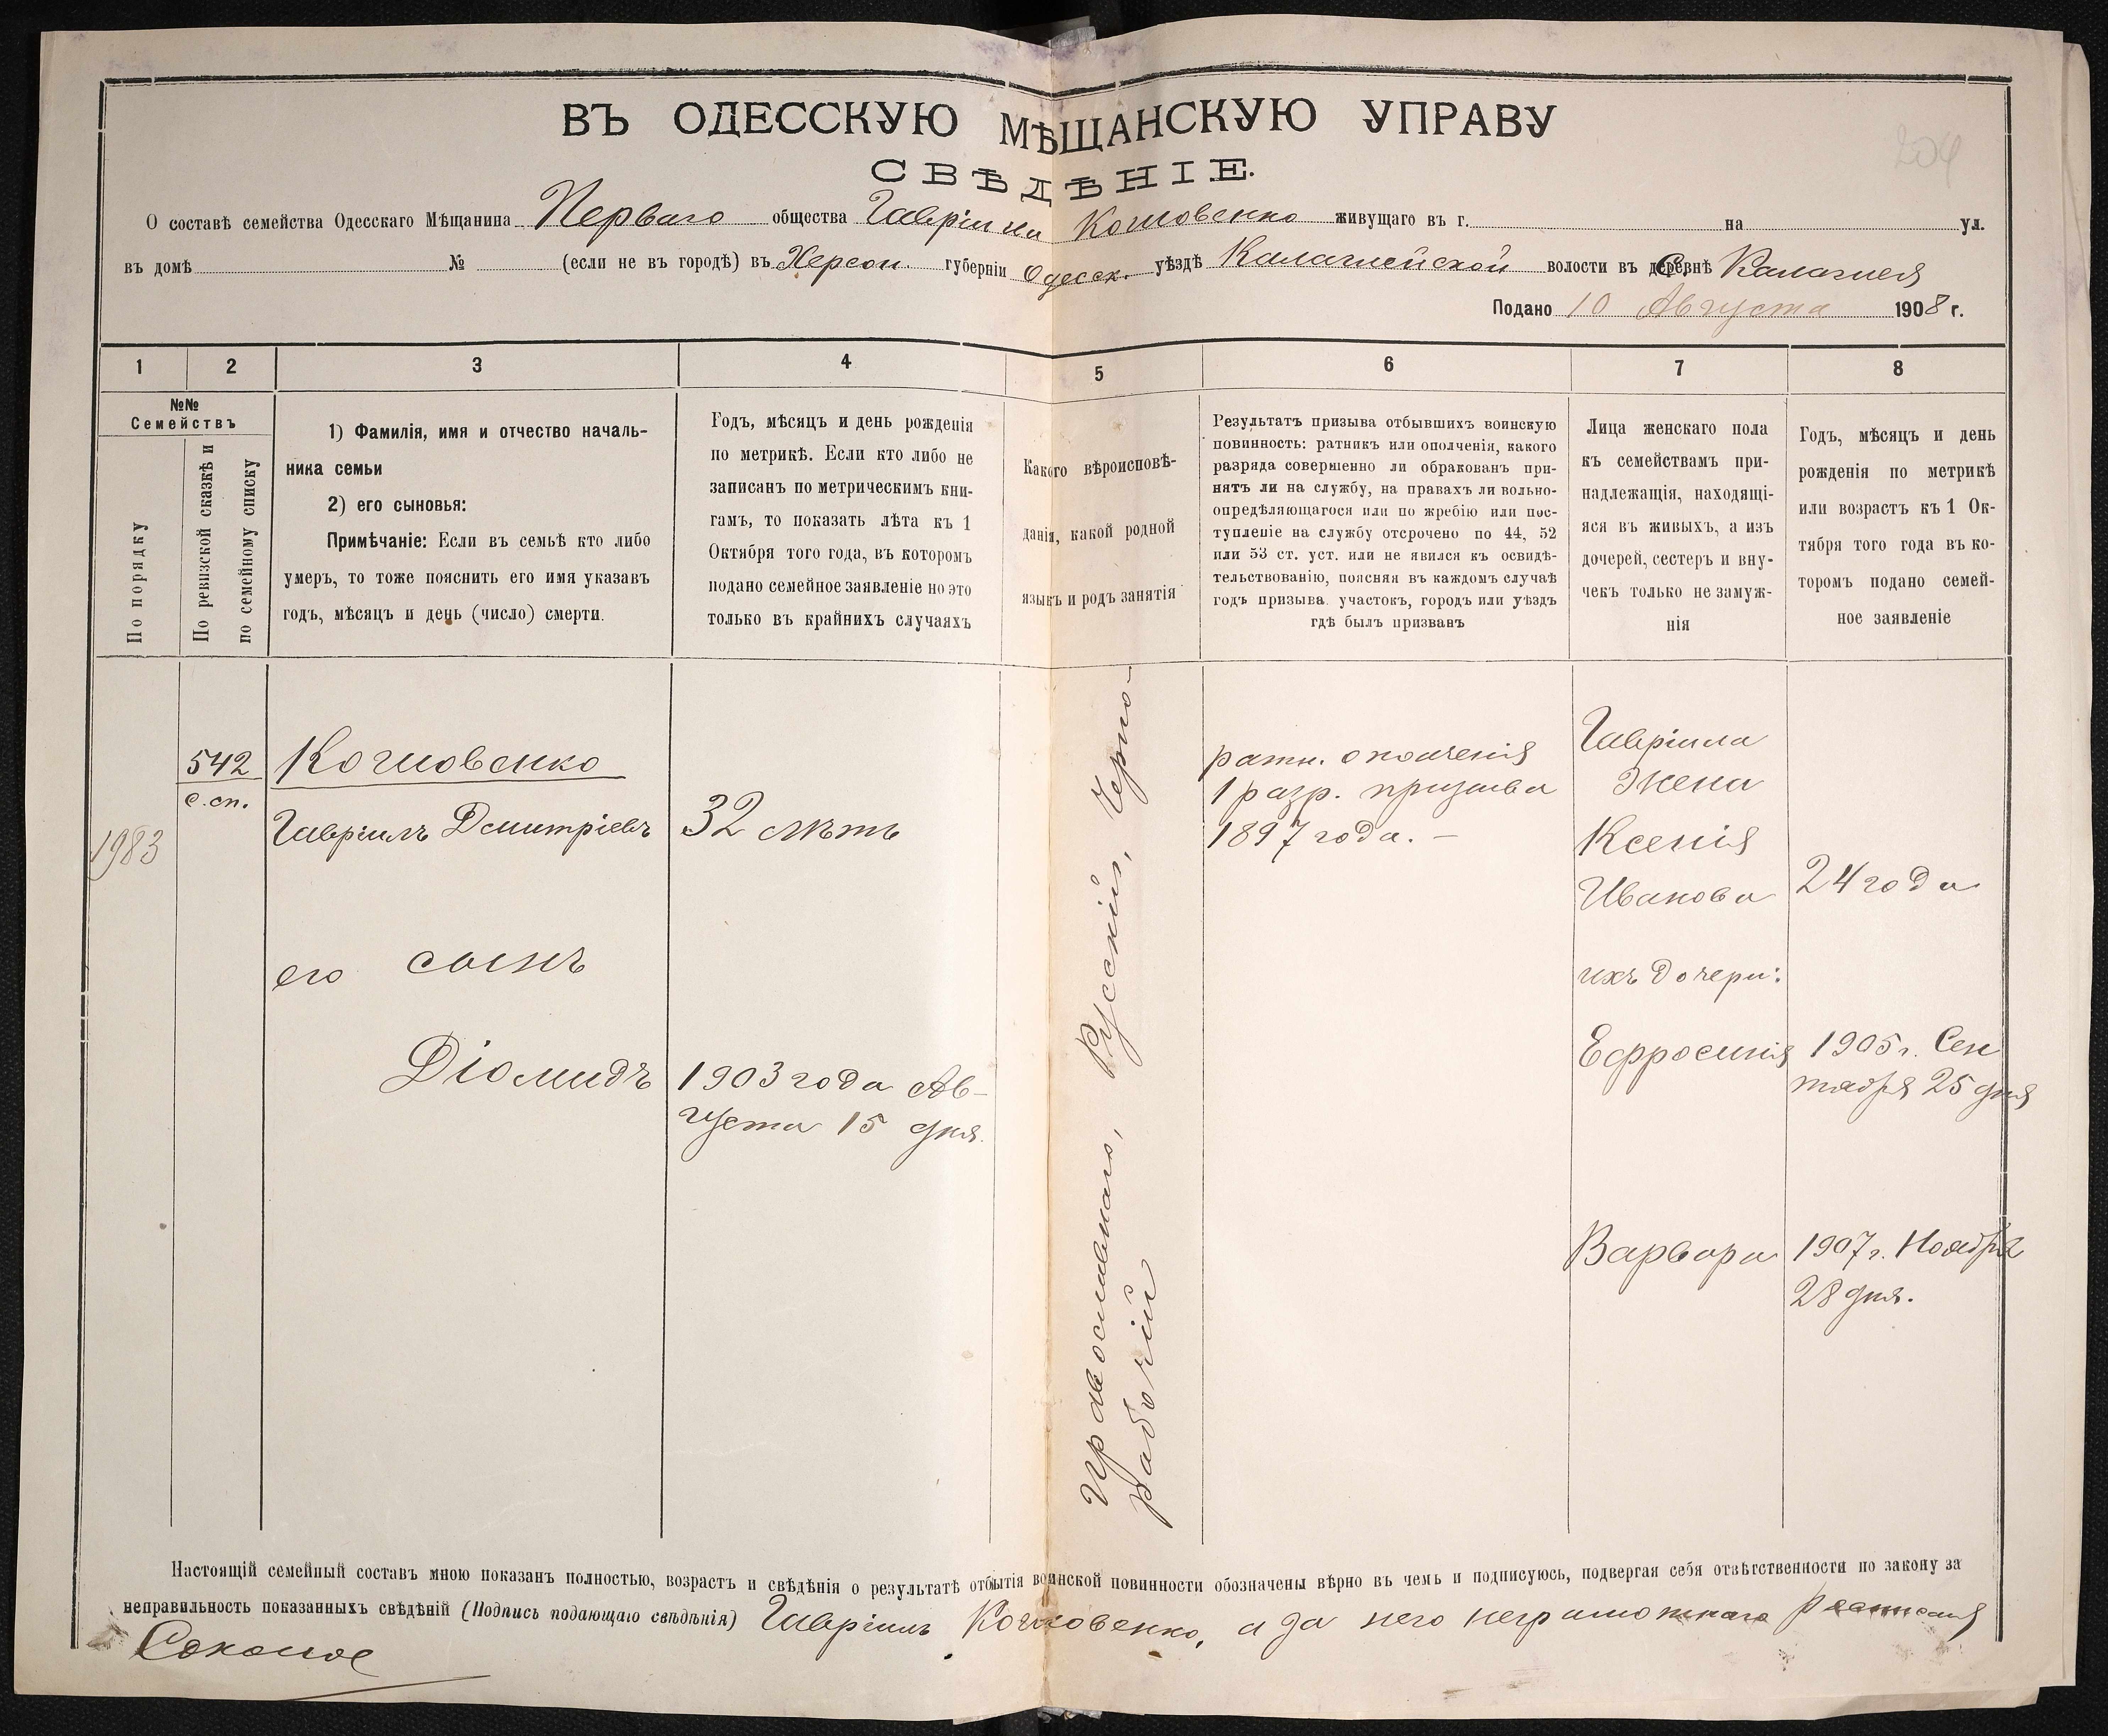 204
ВЪ ОДЕССКУЮ МѢЩАНСКУЮ УПРАВУ
СВѢДѢНІЕ.
О составѣ семейства Одесскаго Мѣщанина Перваго общества Гавріила живущаго въ г. на ул.
въ домѣ № (если не въ городѣ) въ Херсон. губерніи Одесск. уѣздѣ Калаглейской волости въ деревнѣ С. Калаглея
Подано 10 Августа 1908 г.
1 2 3 4 5 6 7 8
№№
Семействъ
По порядку
По ревизской сказкѣ и
по семейному списку
1) Фамилія, имя и отчество началь-
ника семьи
2) его сыновья:
Примѣчаніе: Если въ семьѣ кто либо
умеръ, то тоже пояснить его имя указавъ
годъ, мѣсяцъ и день (число) смерти.
Годъ, мѣсяцъ и день рожденія
по метрикѣ. Если кто либо не
записанъ по метрическимъ кни-
гамъ, то показать лѣта къ 1
Октября того года, въ которомъ
подано семейное заявленіе но это
только въ крайнихъ случаяхъ
Какого вѣроисповѣ-
данія, какой родной
языкъ и родъ занятія
Результатъ призыва отбывшихъ воинскую
повинность: ратникъ или ополченія, какого
разряда совершенно ли обракованъ при-
нятъ ли на службу, на правахъ ли вольно-
опредѣляющагося или по жребію или пос-
тупленіе на службу отсрочено по 44, 52
или 53 ст. уст. или не явился къ освидѣ-
тельствованію, поясняя въ каждомъ случаѣ
годъ призыва участокъ, городъ или уѣздъ
гдѣ былъ призванъ
Лица женскаго пола
къ семействамъ при-
надлежащія, находящі-
яся въ живыхъ, а изъ
дочерей, сестеръ и вну-
чекъ только не замуж-
нія
Годъ, мѣсяцъ и день
рожденія по метрикѣ
или возрастъ къ 1 Ок-
тября того года въ ко-
торомъ подано семей-
ное заявленіе
1983
542
с.сп.
Гавріилъ Дмитріевъ
32 лѣтъ
его сынъ
Діомидъ
1903 года Ав-
густа 15 дня.
Православнаго, Русскій, Черно-
рабочій
ратн. ополченія
1 разр. призыва
1897 года. —
Гавріила
Жена
Ксенія
Иванова
24 года
ихъ дочери:
Ефросинія
1905 г. Сен
тября 25 дня
Варвара
1907 г. Ноября
28 дня.
Настоящій семейный составъ мною показанъ полностью, возрастъ и свѣдѣнія о результатѣ отбытія воинской повинности обозначены вѣрно въ чемъ и подписуюсь, подвергая себя отвѣтственности по закону за
неправильность показанныхъ свѣдѣній (Подпись подающаго свѣдѣнія) Гавріилъ а за него неграмотнаго